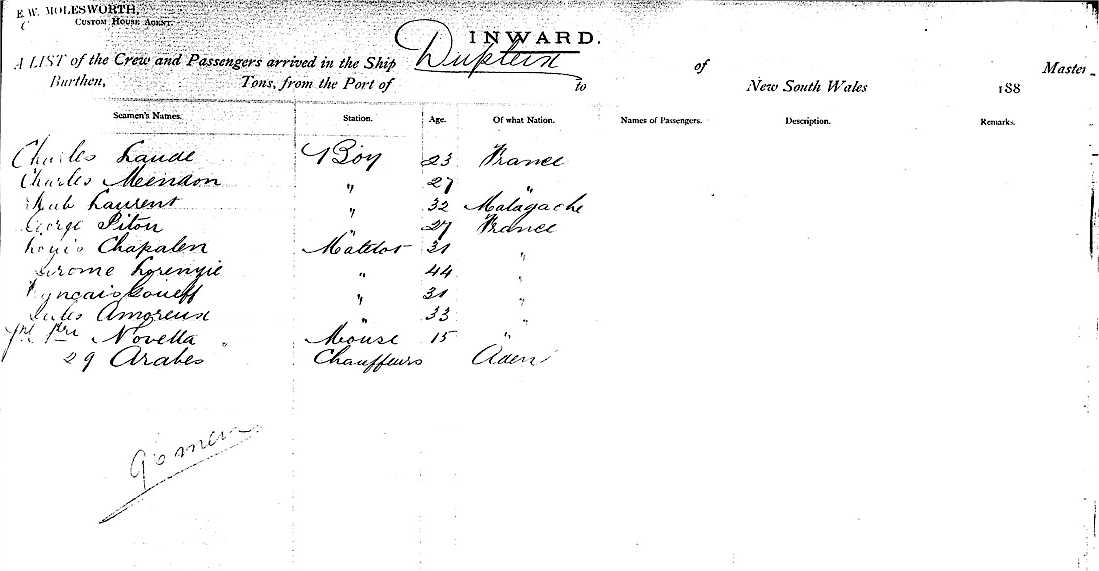 E. W. MOLESWORTH,
CUSTOM HOUSE AGENT.
INWARD.
A LIST of the Crew and Passengers arrived in the Ship Dupleix of Master
Burthen, Tons, from the Port of to New South Wales 188
Seamen's Names. Station. Age. Of what Nation. Names of Passengers. Description. Remarks.
Charles Laude Boy 23 France
Charles Meindon " 27 "
Laurent " 32 Malagache
George Piton " 27 France
Louis Chapalen Matelot 31 "
Jerome " 44 "
" 31 "
Jules Amoreux " 33 "
Novella " Mousse 15 "
29 Arabes Chauffeurs Aden
96 men